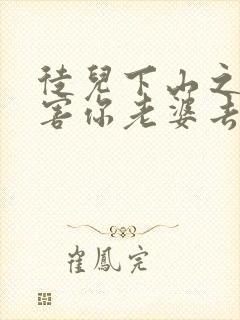 徒兒下山之
害你老婆去
崔鳳完